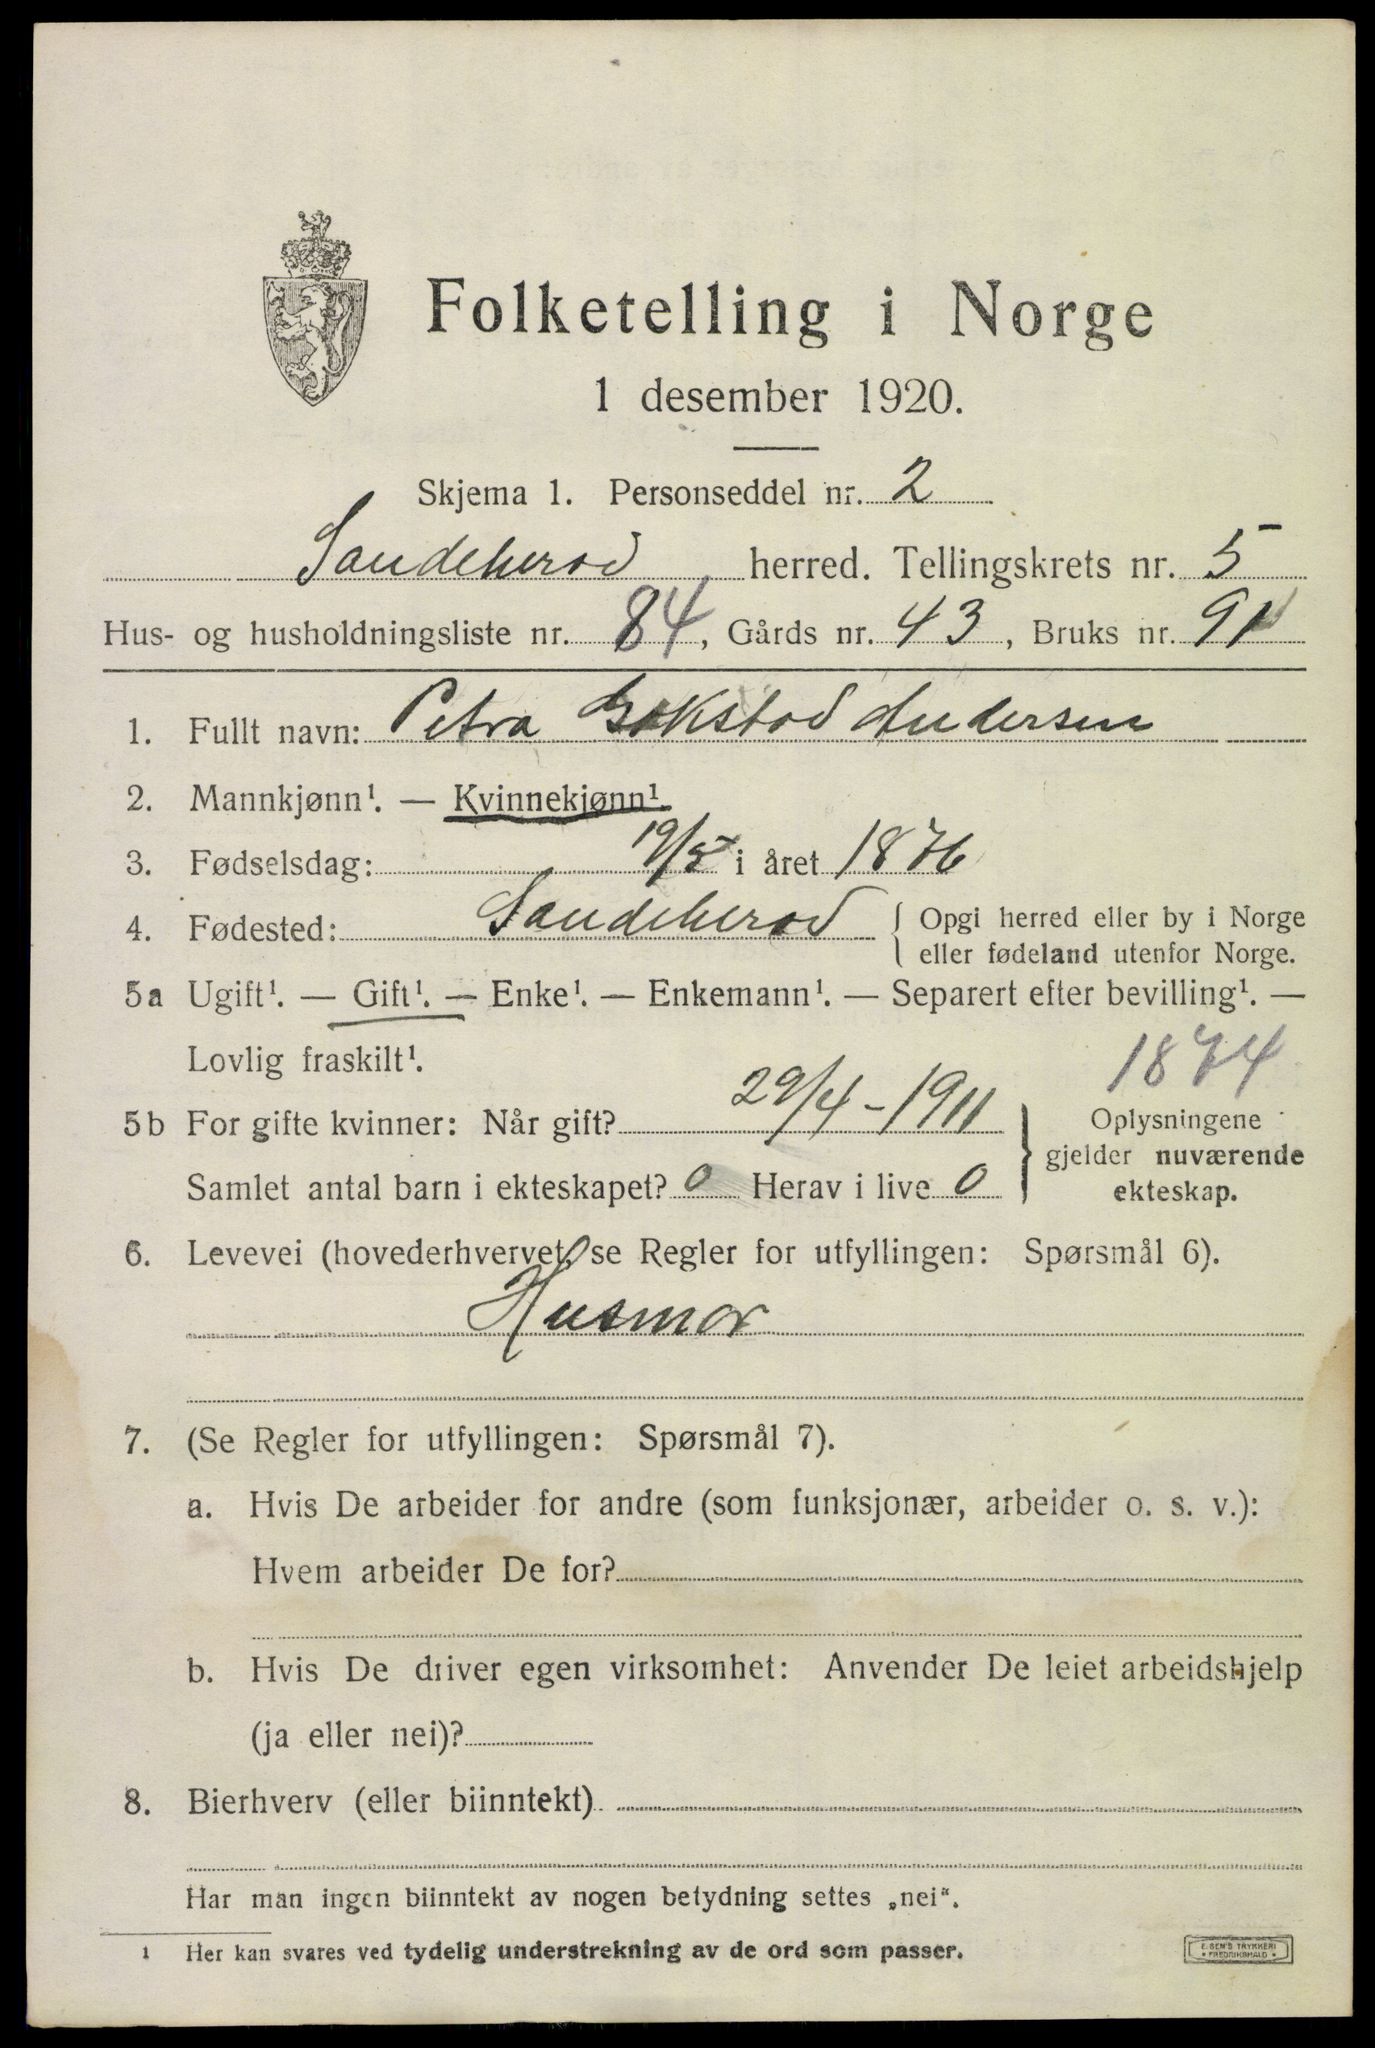 Folketelling i Norge
1 desember 1920.
Skjema 1. Personseddel nr. 2
Sandeherad herred. Tellingskrets nr. 5
Hus- og husholdningsliste nr. 84, Gårds nr. 43, Bruks nr. 91
1. Fullt navn: Petra Gokstad Andersen
2. Mannkjønn¹. — Kvinnekjønn¹.
3. Fødselsdag: 19/5 i året 1876
4. Fødested: Sandeherad { Opgi herred eller by i Norge
eller fødeland utenfor Norge.
5a Ugift¹. — Gift¹. — Enke¹. — Enkemann¹. — Separert efter bevilling¹. —
Lovlig fraskilt¹.
1874
5b For gifte kvinner: Når gift? 29/4-1911
Samlet antal barn i ekteskapet? 0 Herav i live 0
} Oplysningene
gjelder nuværende
ekteskap.
6. Levevei (hovederhvervet, se Regler for utfyllingen: Spørsmål 6).
Husmor
7. (Se Regler for utfyllingen: Spørsmål 7).
a. Hvis De arbeider for andre (som funksjonær, arbeider o. s. v.):
Hvem arbeider De for?
b. Hvis De driver egen virksomhet: Anvender De leiet arbeidshjelp
(ja eller nei)?
8. Bierhverv (eller biinntekt)
Har man ingen biinntekt av nogen betydning settes „nei“.
1 Her kan svares ved tydelig understrekning av de ord som passer.
E. SEM'S TRYKKERI
* FREDRIKSHALD *